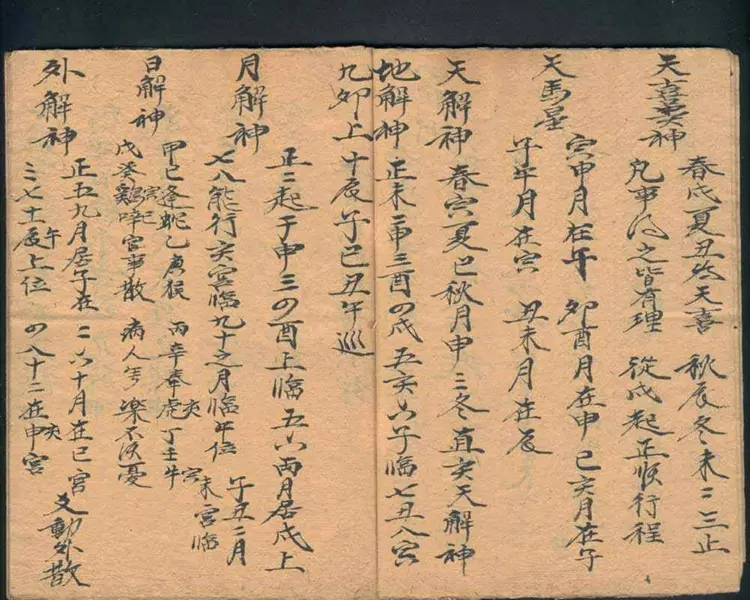 天喜
春戌夏丑為天喜 秋辰冬未二三止
凡事得之皆有理 從戌起正順行程
天馬星
寅申月在午 卯酉月在申 巳亥月在子
子午月在寅 丑未月在辰
天解神 春寅夏巳秋月申 三冬直亥天解神
地解神 正未二申三酉四戌 五亥六子臨七丑八寅
九卯上十辰子巳丑午巡
月解神
正二起于申三四酉上臨 五六兩月居戌上
七八能行亥宮臨九十之月臨午位 子丑二月
未宮臨
日解神
甲己逢蛇乙庚猴 丙辛奉虎丁壬牛
戊癸雞啼官事散 病人樂不須憂
外解神
正五九月居子在 二六十月在巳宮
三七十辰上位 四八十二在申宮
爻動外散